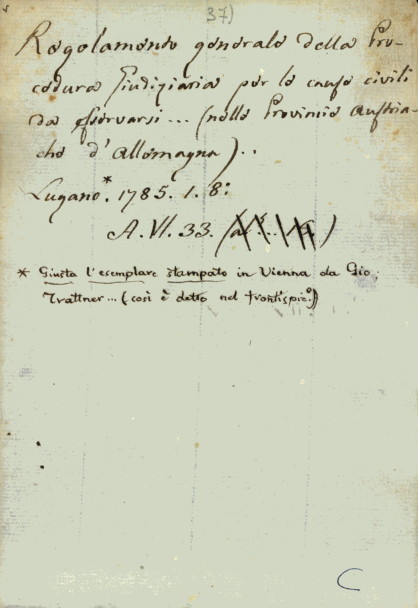 37)
Regolamento generale della Pro-
cedura Giudiziaria per le cause civili
da osservarsi... (nelle Provincie Austria-
che d'Allemagna)..
Lugano.* 1785. 1. 8:
A. VI. 33.
* Giusta l'esemplare stampato in Vienna da Gio.
Trattner... (così è detto nel frontispic.º)
C